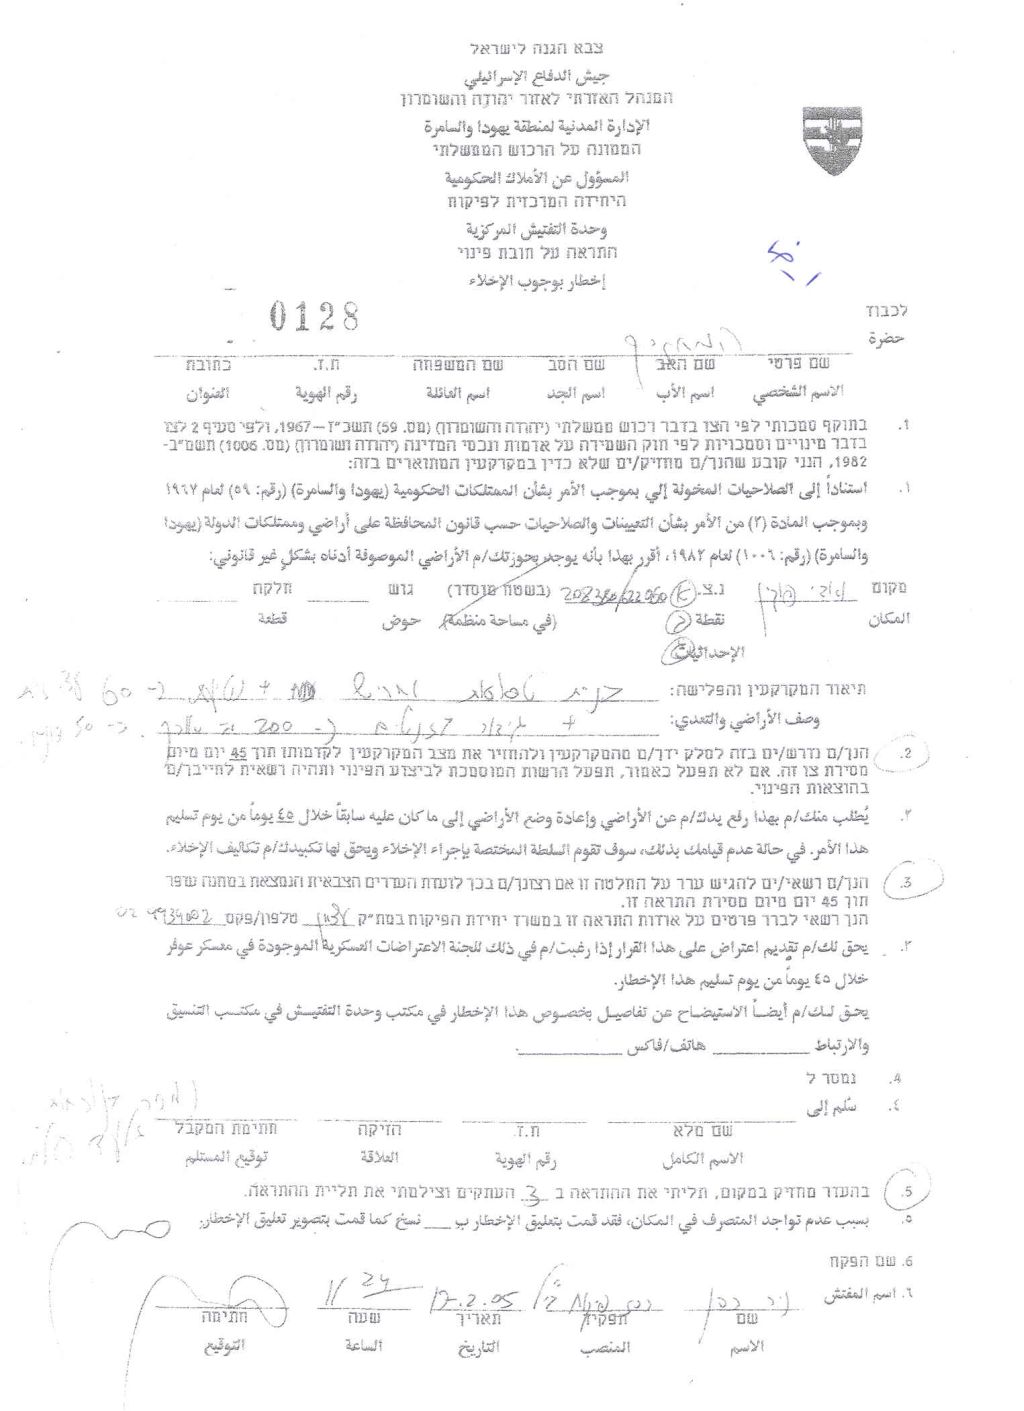 צבא הגנה לישראל
جيش الدفاع الإسرائيلي
המנהל האזרחי לאזור יהודה והשומרון
الإدارة المدنية لمنطقة يهودا والسامرة
הממונה על הרכוש הממשלתי
المسؤول عن الأملاك الحكومية
היחידה המרכזית לפיקוח
وحدة التفتيش المركزية
התראה על חובת פינוי
إخطار بوجوب الإخلاء
0128
לכבוד
حضرة המחזיק
שם פרטי שם האב שם הסב שם המשפחה ת.ז. כתובת
الاسم الشخصي اسم الأب اسم الجد اسم العائلة رقم الهوية العنوان
1. בתוקף סמכותי לפי הצו בדבר רכוש ממשלתי (יהודה והשומרון) (מס. 59) תשכ"ז–1967, ולפי סעיף 2 לצו
בדבר מינויים וסמכויות לפי חוק השמירה על אדמות ונכסי המדינה (יהודה ושומרון) (מס. 1006) תשמ"ב-
1982, הנני קובע שהנך/ם מחזיק/ים שלא כדין במקרקעין המתוארים בזה:
١. استناداً إلى الصلاحيات المخولة إلي بموجب الأمر بشأن الممتلكات الحكومية (يهودا والسامرة) (رقم: ٥٩) لعام ١٩٦٧
وبموجب المادة (٢) من الأمر بشأن التعيينات والصلاحيات حسب قانون المحافظة على أراضي وممتلكات الدولة (يهودا
والسامرة) (رقم: ١٠٠٦) لعام ١٩٨٢، أقرر بهذا بأنه يوجد بحوزتك/م الأراضي الموصوفة أدناه بشكلٍ غير قانوني:
מקום נ.צ. (בשטח מוסדר) גוש חלקה
المكان نقطة (في مساحة منظمة) حوض قطعة
الإحداثيات
תיאור המקרקעין והפלישה:
وصف الأراضي والتعدي:
2. הנך/ם נדרש/ים בזה לסלק ידך/ם מהמקרקעין ולהחזיר את מצב המקרקעין לקדמותו תוך 45 יום מיום
מסירת צו זה. אם לא תפעל כאמור, תפעל הרשות המוסמכת לביצוע הפינוי ותהיה רשאית לחייבך/ם
בהוצאות הפינוי.
٢. يُطلب منك/م بهذا رفع يدك/م عن الأراضي وإعادة وضع الأراضي إلى ما كان عليه سابقاً خلال ٤٥ يوماً من يوم تسليم
هذا الأمر. في حالة عدم قيامك بذلك، سوف تقوم السلطة المختصة بإجراء الإخلاء ويحق لها تكبيدك/م تكاليف الإخلاء.
3. הנך/ם רשאי/ים להגיש ערר על החלטה זו אם רצונך/ם בכך לועדת העררים הצבאית הנמצאת במחנה עופר
תוך 45 יום מיום מסירת התראה זו.
הנך רשאי לברר פרטים על אודות התראה זו במשרד יחידת הפיקוח במת"ק עציון טלפון/פקס
٣. يحق لك/م تقديم اعتراض على هذا القرار إذا رغبت/م في ذلك للجنة الاعتراضات العسكرية الموجودة في معسكر عوفر
خلال ٤٥ يوماً من يوم تسليم هذا الإخطار.
يحق لك/م أيضاً الاستيضاح عن تفاصيل بخصوص هذا الإخطار في مكتب وحدة التفتيش في مكتب التنسيق
والارتباط هاتف/فاكس
4. נמסר ל
٤. سُلم إلى
שם מלא ת.ז. הזיקה חתימת המקבל
الاسم الكامل رقم الهوية العلاقة توقيع المستلم
5. בהעדר מחזיק במקום, תליתי את ההתראה ב 3 העתקים וצילמתי את תליית ההתראה.
٥. بسبب عدم تواجد المتصرف في المكان، فقد قمت بتعليق الإخطار ب نسخ كما قمت بتصوير تعليق الإخطار.
6. שם הפקח
٦. اسم المفتش 17.2.05
שם תפקיד תאריך שעה חתימה
الاسم المنصب التاريخ الساعة التوقيع